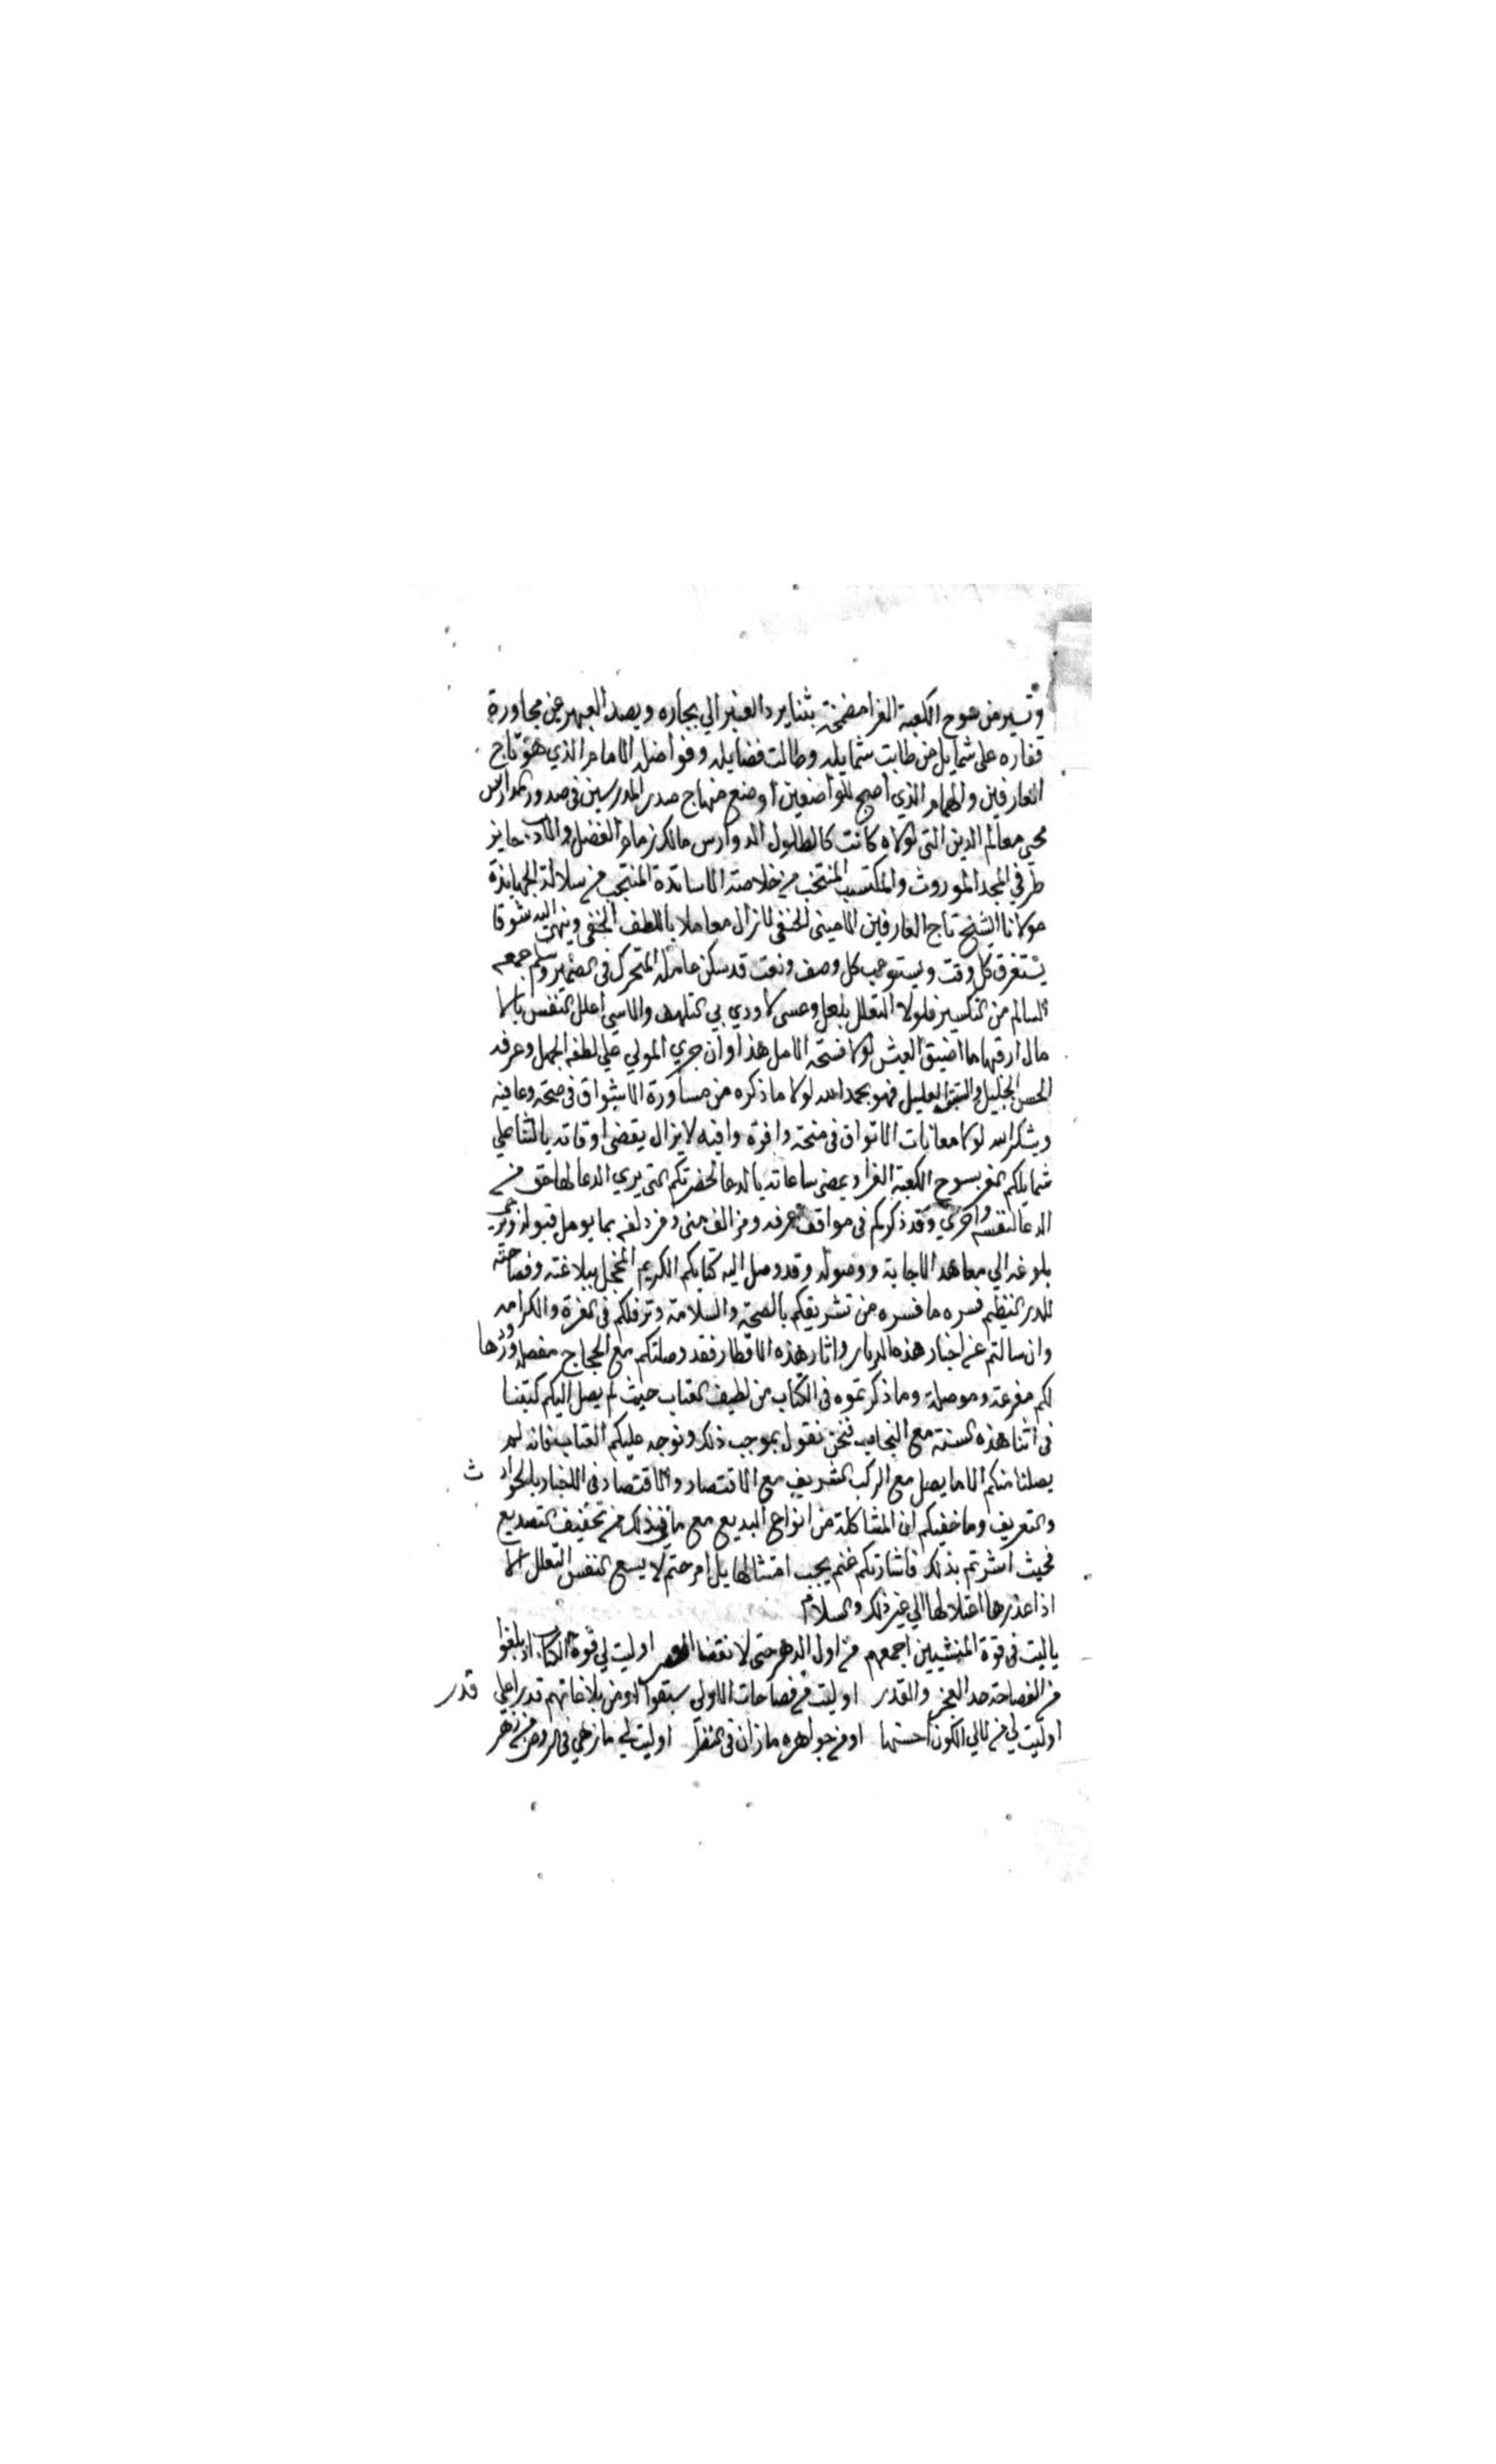 وتسير من سوح الكعبة الغرا مضمخة بثنا يرد العنبر الي بحاره ويصد العبهر عن مجاورة
قفاره على شمايل من طابت شمايله وطالت فضايله وفواضله الامام الذي هو تاج
العارفين والهمام الذي اصبح للواضعين اوضع منهاج صدر المدرسين في صدور المدارس
محيى معالم الدين التى لولاه كانت كالطلول الدوارس مالك زمام الفضل والادب حايز
طرفي المجد الموروث والمكتسب المنتخب من خلاصة الاساتذة المنتجب من سلالة الجهابذة
مولانا الشيخ تاج العارفين الامينى الحنفى لازال معاملا باللطف الخفى وينهى اليه شوقا
يستغرق كل وقت ويستوعب كل وصف ونعت قد سكن عامله المتحرك في الضمير وسلم جمعه
السالم من التكسير فلولا التعلل بلعل وعسى لاودي بي التلهف والاسى اعلل النفس بالا
مال ارقبها ما اضيق العيش لولا فسحة الامل هذا وان جري المولي علي لطفه الجمل وعرفه
الحسن الجليل والستر فهو بحمد الله لولا ما ذكره من مساورة الاشواق في صحة وعافيه
وبشكر الله لولا معانات الاتواق في منحة وافرة وافيه لايزال يقضى اوقاته بالثنا علي
شمايلكم الغر بسوح الكعبة الغرا ويمضى ساعاته بالدعا لحضرتكم التى يري الدعا لها حق من
الدعا لنفسه واحري وقد ذكركم في مواقف عرفه ومزالف منى ومزدلفه بما يومل قبوله ونرجى
بلوغه الي معاهد الاجابة ووصوله وقد وصل اليه كتابكم الكريم المخجل ببلاغته وفصاحته
للدر النظيم فسره ما فسره من تشريفكم بالصحة والسلامة وترفلكم في العزة والكرامه
وان سالتم عن اخبار هذه الديار واثار هذه الاقطار فقد وصلتكم مع الحجاج مفصله
لكم مفرعة وموصلة وما ذكرتموه في الكتاب من لطيف العتاب حيث لم يصل اليكم كتبنا
في اثنا هذه السنة مع النجاب فنحن نقول بموجب ذلك ونوجه عليكم العتاب فانه لم
يصلنا منكم الا ما يصل مع الركب الشريف مع الاقتصاد والاقتصار في الاخبار بالحوادث
والتعريف وما خفيكم ان المشاكلة من انواع البديع مع ما في ذلك من تخفيف التصديع
فحيث اشرتم بذلك فاشارتكم غنم يجب امتثالها بل امر حتم لا يسع النفس التعلل الا
اذا عذرها اعتلالها الي غير ذلك والسلام
ياليت في قوة المنشيين اجمعهم من اول الدهر حتى لانقضا العصر او ليت لي قوة الكتاب اذ بلغوا
من الفصاحة حد العجز والقدر او ليت من فصاحات الاولى سبقوا او من بلاغاتهم قدرا على قدر
او ليت لي من لالي الكون احسنها او من جواهره مازان في النظر او ليت لي ما زهي في الروض من زهر